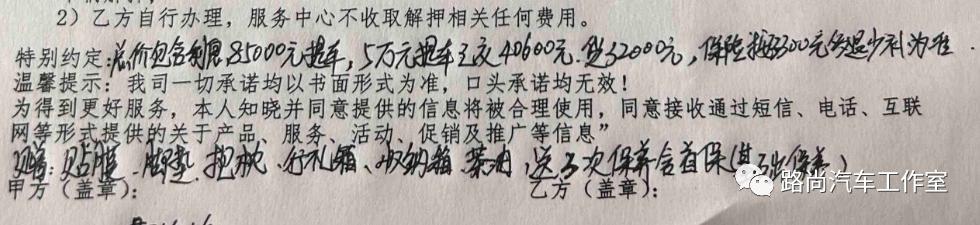 2）乙方自行办理，服务中心不收取解押相关任何费用。
特别约定：总价包含利息85000元提车，5万元提车首付40600元.贷32000元，保险按5300元多退少补为准
温馨提示：我司一切承诺均以书面形式为准，口头承诺均无效！
为得到更好服务，本人知晓并同意提供的信息将被合理使用，同意接收通过短信、电话、互联
网等形式提供的关于产品、服务、活动、促销及推广等信息”
贴膜.脚垫.抱枕.行礼箱、收纳箱.菜油，送三次保养含首保（基础保养）
甲方（盖章）：
乙方（盖章）：
路尚汽车工作室